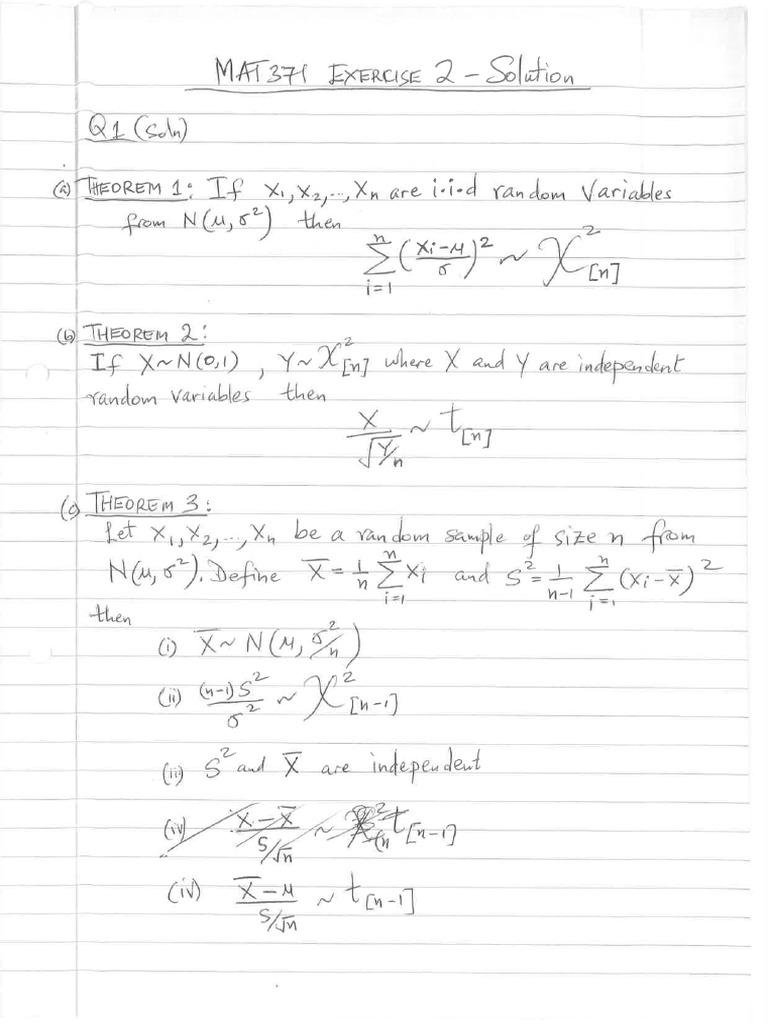 MAT371 EXERCISE 2 – Solution
Q1 (Soln)
(a) THEOREM 1: If X₁, X₂, ..., Xn are i.i.d random Variables
from N(μ, σ²) then
∑ᵢ₌₁ⁿ ((Xi – μ)/σ)² ~ χ²[n]
(b) THEOREM 2:
If X ~ N(0,1) , Y ~ χ²[n] where X and Y are independent
random variables then
X/√(Y/n) ~ t[n]
(c) THEOREM 3:
Let X₁, X₂, ..., Xn be a random sample of size n from
N(μ, σ²). Define X̄ = 1/n ∑ᵢ₌₁ⁿ Xi and S² = 1/(n-1) ∑ᵢ₌₁ⁿ (Xi – X̄)²
then
(i) X̄ ~ N(μ, σ²/n)
(ii) (n-1)S²/σ² ~ χ²[n-1]
(iii) S² and X̄ are independent
(iv) (X – X̄)/(S/√n) ~ t[n-1]
(iv) (X̄ – μ)/(S/√n) ~ t[n-1]